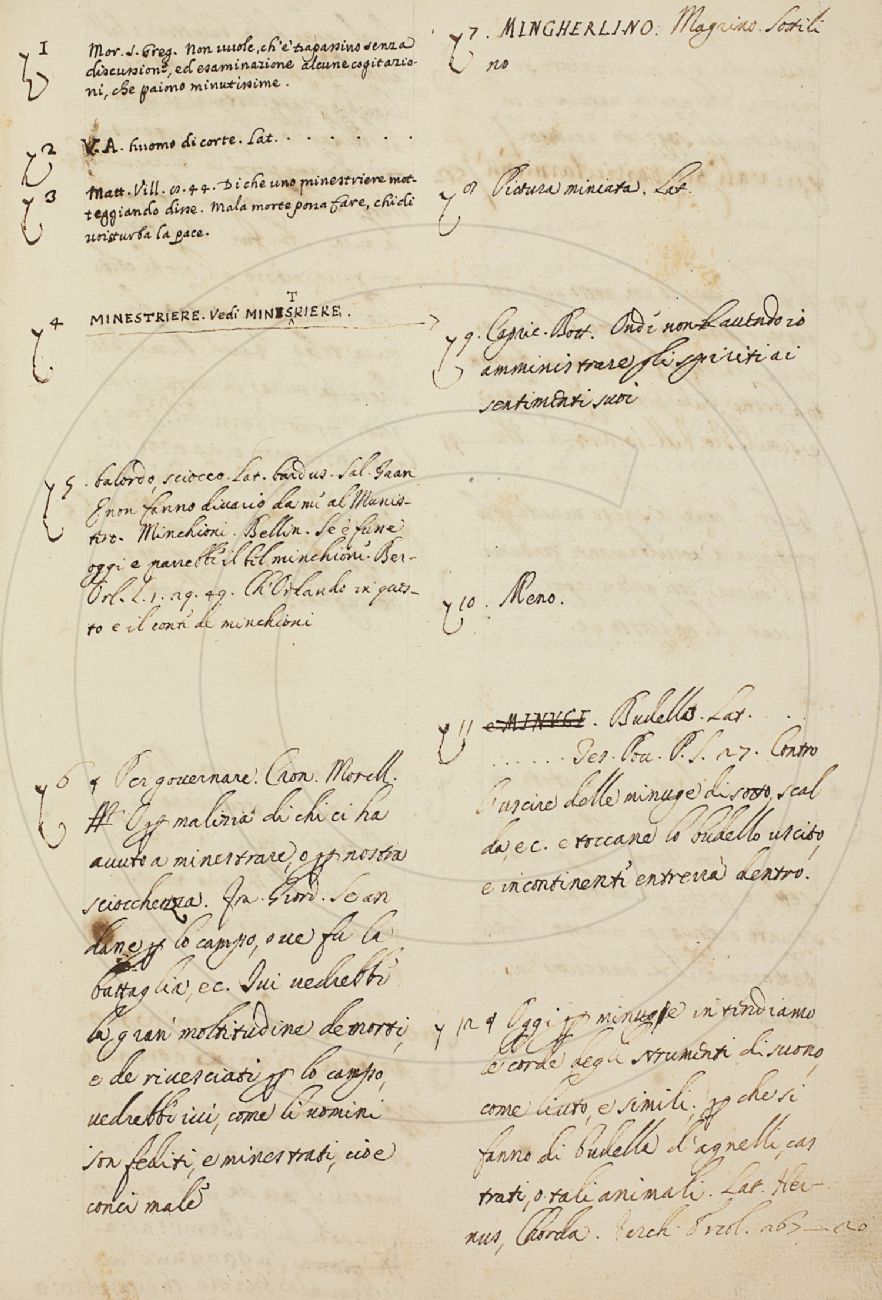 1 Mor. S. Greg. Non vuole, ch'e' trapassino senza
discussione, ed esaminazione alcune cogitazio-
ni, che paiono minutissime.
2 V. A. huomo di corte. Lat. . . . . . .
3 Matt. Vill. 12. 44. Di che uno minestriere mot-
teggiando disse. Mala morte possa fare, chi di
voi sturba la pace.
T
4 MINESTRIERE. Vedi MINISRIERE.
5. balordo, sciocco. Lat. bardus. Sal. Gran
E non fanno divario da mi al Munis-
tiro. Minchioni. Bellin. Se e' fusse
oggi e parrebbe il bel minchione. Ber-
Orl. L. 1. 29. 49. Ch'Orlando in ques-
to e il conte de minchioni
6 ¶ Per governare. Cron. Morell.
O ꝑ malizia di chi ci ha
avuto a minestrare, o ꝑ nostra
sciocchezza. Fra. Giord. Se an
dane ꝑ lo campo, ove fu la
battaglia, ec. Ivi vedrebbe
la gran moltitudine de morti,
e de rivesciati ꝑ lo campo,
vedrebbe ivi, come li uomini
son fediti, e minestrati, cioe
conci male
7. MINGHERLINO. Magrino. Sottili
no
8 Pictura miniata. Lat.
9. Capric. Bott. Onde non avendo io
amministrare gli spiriti ai
sentimenti suoi
10. Meno.
11 e MINUGE. Budella. Lat. . .
. . . . . . Tes. Pov. P. S. 27. Contro
l'uscire delle minuge di sotto, scal
da, ec. e toccane lo budello uscito,
e incontinente entrerrà dentro.
12 ¶ Oggi ꝑ minugie intendiamo
le corde degli strumenti di suono,
come liuto, e simili, ꝑ che si
fanno di budella d'agnelli, cas
trati, o tali animali. Lat. Ner-
nus, Chorda. Varch. Ercol. 267 — 20